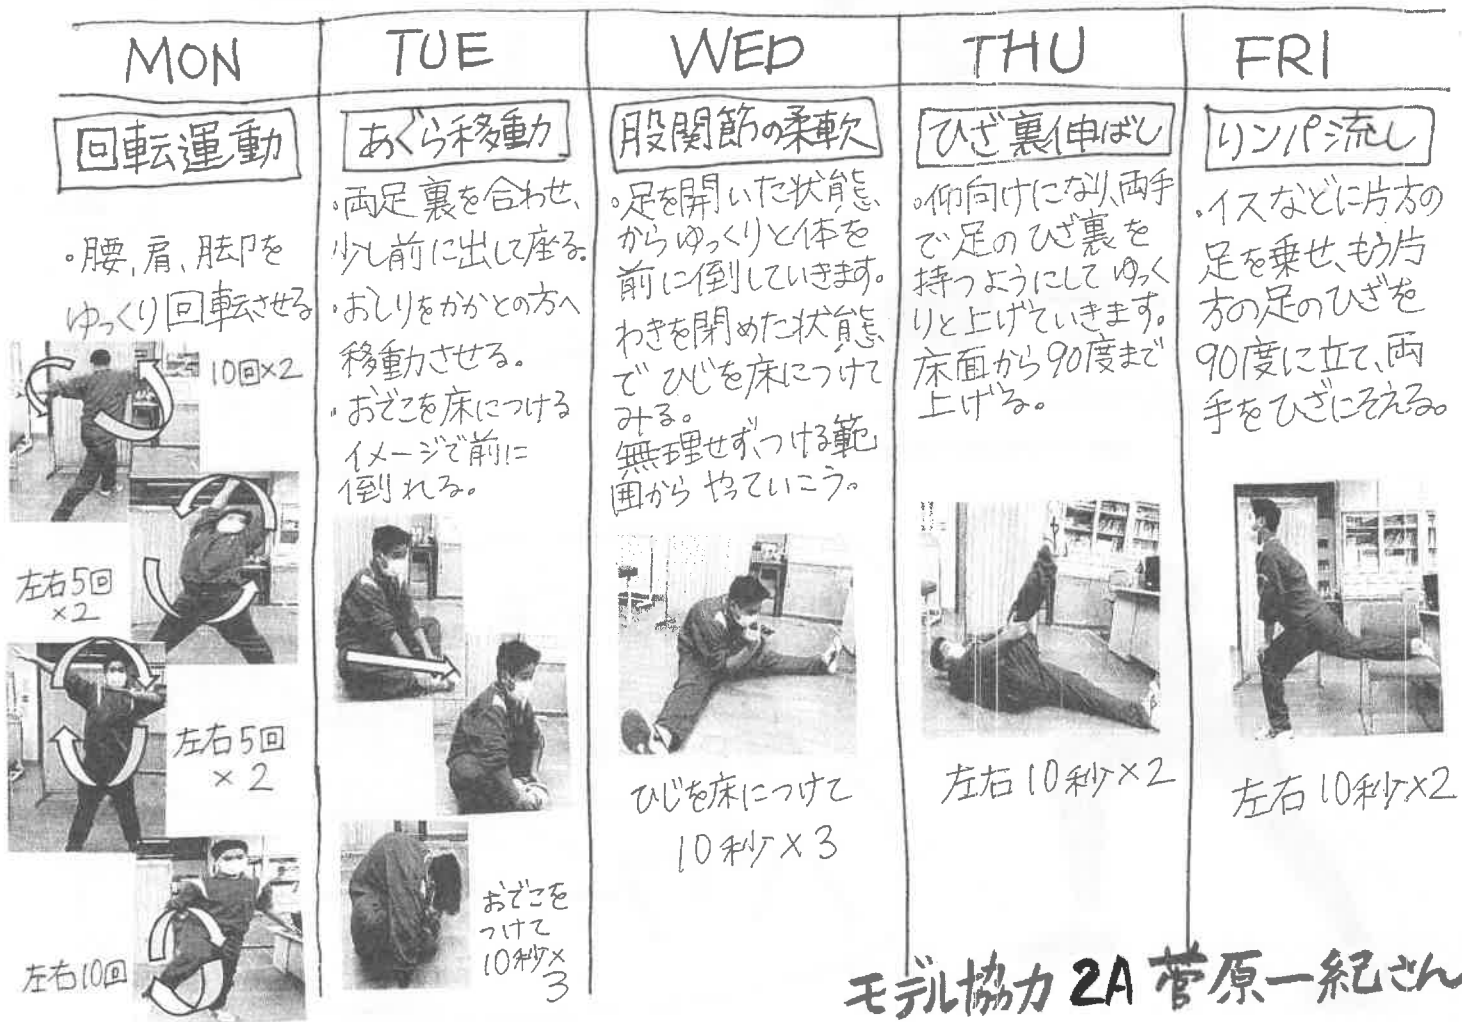 MON
回転運動
・腰、肩、脚を
ゆっくり回転させる
10回×2
左右5回
×2
左右5回
×2
左右10回
TUE
あぐら移動
・両足裏を合わせ、
少し前に出して座る。
・おしりをかかとの方へ
移動させる。
・おでこを床につける
イメージで前に
倒れる。
おでこを
つけて
10秒×
3
WED
股関節の柔軟
・足を開いた状態
からゆっくりと体を
前に倒していきます。
わきを閉めた状態
でひじを床につけて
みる。
無理せず、つける範
囲からやっていこう。
ひじを床につけて
10秒×3
THU
ひざ裏伸ばし
・仰向けになり、両手
で足のひざ裏を
持つようにしてゆっく
りと上げていきます。
床面から90度まで
上げる。
左右10秒×2
FRI
リンパ流し
・イスなどに片方の
足を乗せ、もう片
方の足のひざを
90度に立て、両
手をひざにそえる。
左右10秒×2
モデル協力 2A 菅原一紀さん